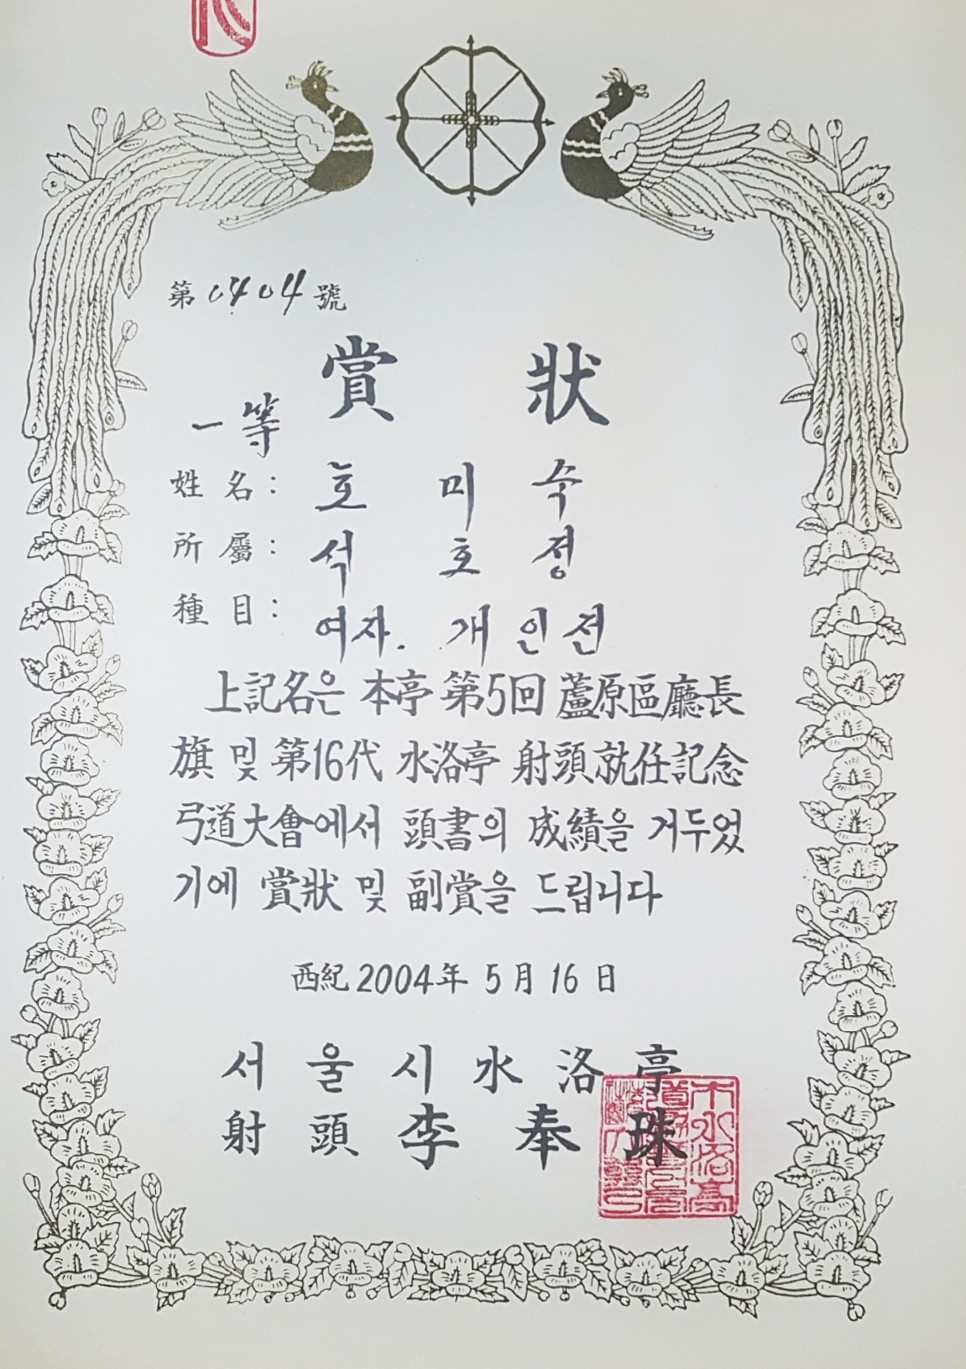 第 0404 號
賞 狀
一等
姓 名 : 호 미 수
所 屬 : 석 호 정
種 目 : 여자. 개 인 전
上記名은 本亭 第5回 蘆原區廳長
旗 및 第16代 水洛亭 射頭就任記念
弓道大會에서 頭書의 成績을 거두었
기에 賞狀 및 副賞을 드립니다
西紀 2004年 5月 16日
서 울 시 水 洛 亭
射 頭 李 奉 珠